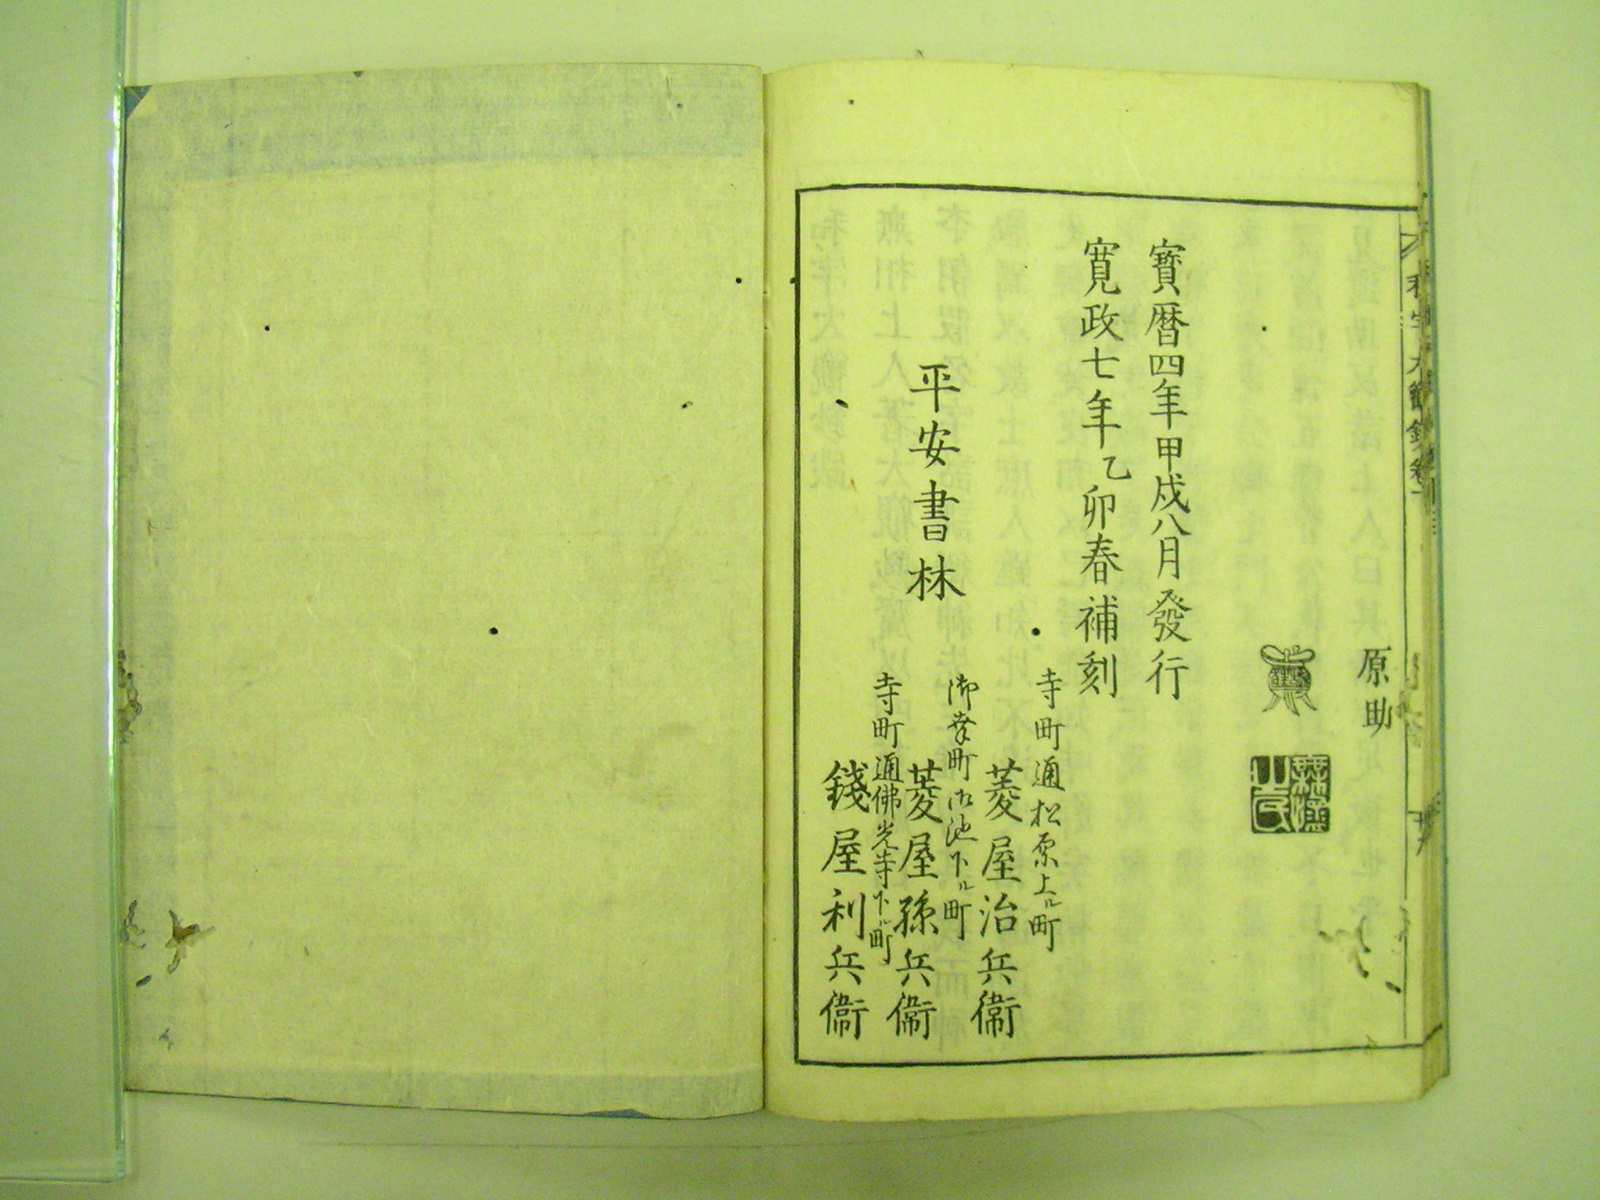 原助
寶暦四年甲戌八月發行
寛政七年乙卯春補刻
平安書林
寺町通松原上ル町
菱屋治兵衞
御幸町御池下ル町
菱屋孫兵衞
寺町通佛光寺下ル町
錢屋利兵衞